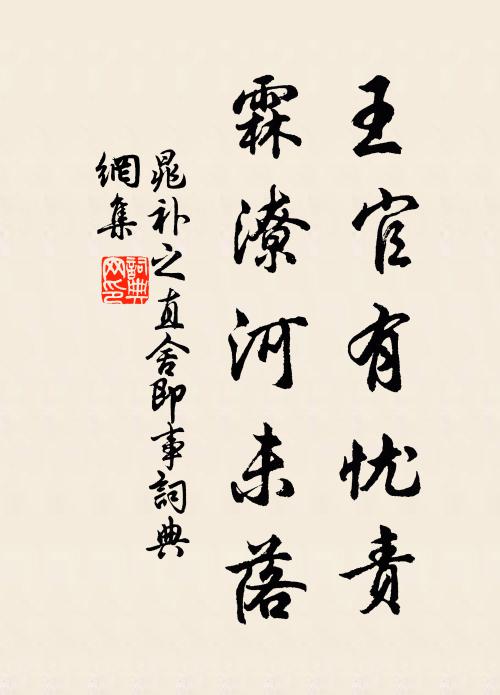 王官有忧责
霖潦河未落
晁补之直舍即事詞典
網集
詞典
网印